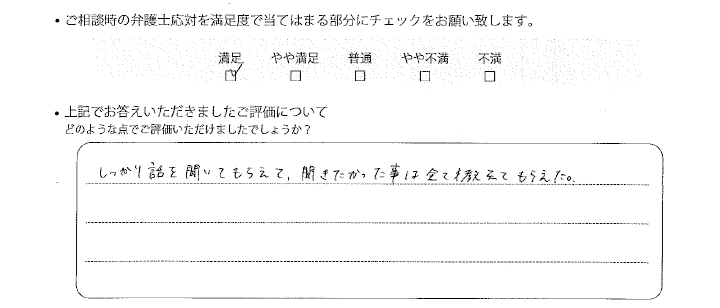 ・ご相談時の弁護士応対を満足度で当てはまる部分にチェックをお願い致します。
満足 やや満足 普通 やや不満 不満
☑ □ □ □ □
・上記でお答えいただきましたご評価について
どのような点でご評価いただけましたでしょうか？
しっかり話を聞いてもらえて、聞きたかった事は全て教えてもらえた。